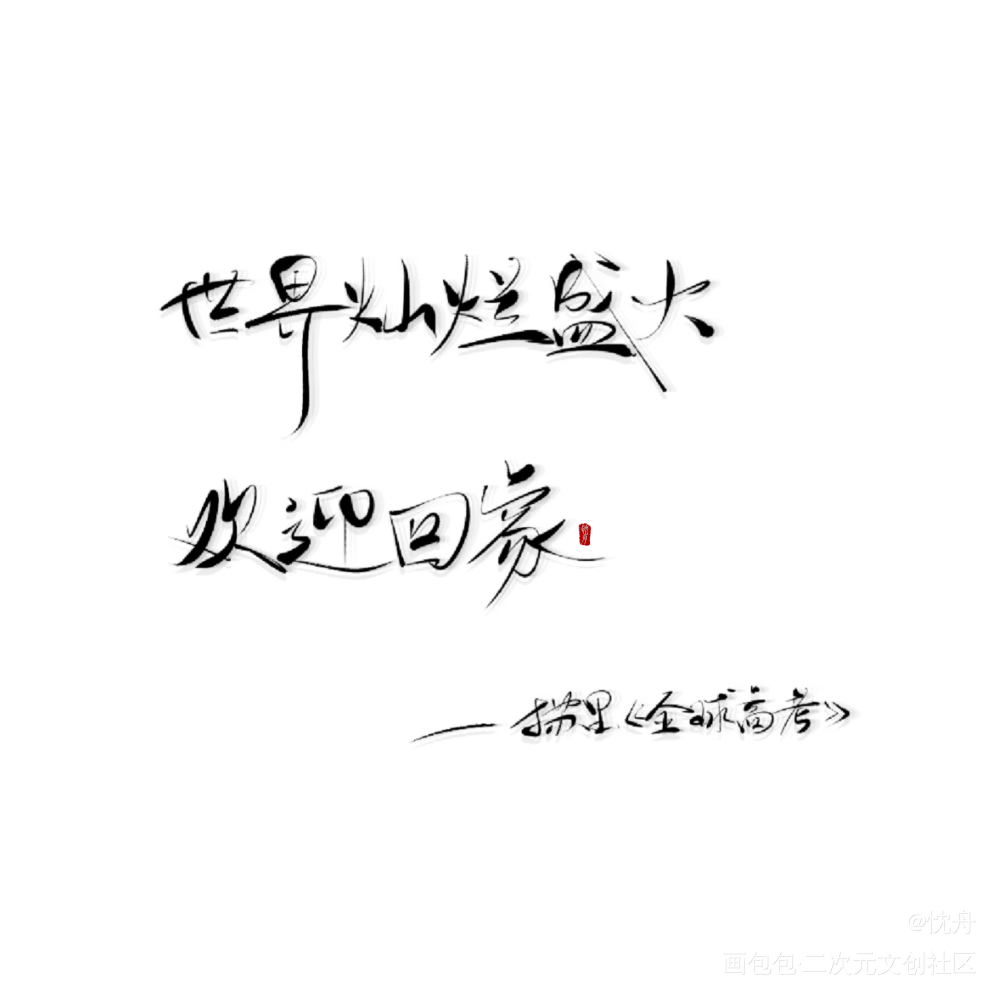 世界灿烂盛大
欢迎回家
——撈里《全球高考》
@忱舟
画包包·二次元文创社区